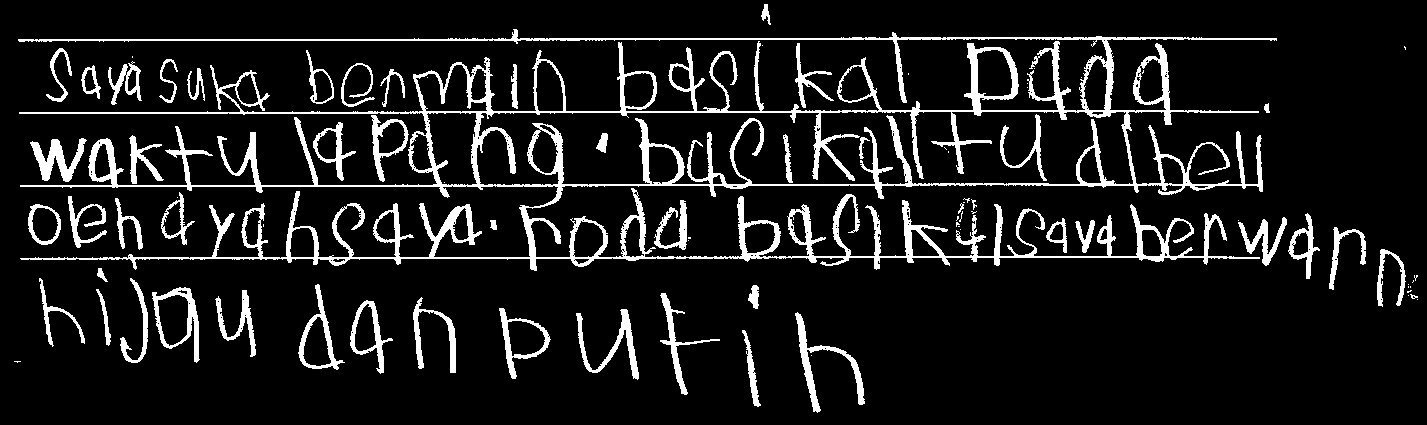 saya suka bermain basikal pada
waktu lapang. basikal itu dibeli
oleh ayah saya. roda basikal saya berwarn
hijau dan putih